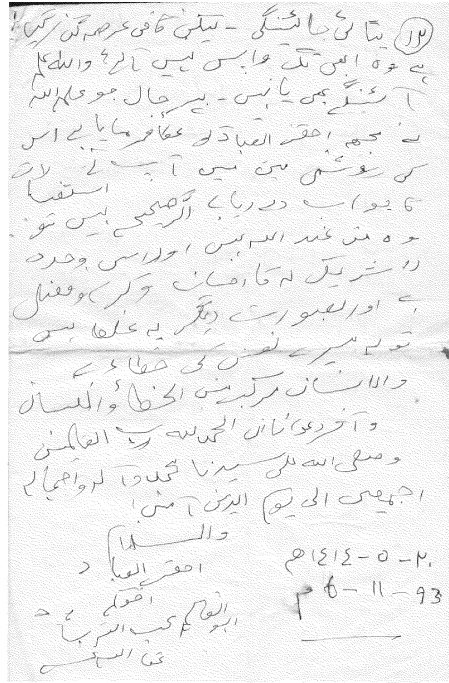 (١٢) بتائی جائینگی - لیکن کافی عرصہ گزر گیا
ہے وہ ابھی تک واپس نہیں آئے واللہ اعلم
آئینگے بھی یا نہیں - بہر حال جو علم اللہ
نے مجھ احقر العباد کو عطا فرمایا ہے اس
کی روشنی میں میں آپ کے استفسارات
کا جواب دے رہا ہے اگر صحیح ہیں تو
وہ من عند اللہ ہیں اور اس وحدہ
لا شریک لہ کا احسان وکرم و فضل
ہے اور بصورت دیگر یہ غلط ہیں
تو یہ میرے نفس کی خطا ہے
والانسان مرکب من الخطأ والنسیان
وآخر دعوانا ان الحمد للہ رب العالمین
وصلی اللہ علی سیدنا محمد وآلہ واصحابہ
اجمعین الی یوم الدین آمین!
والسلام
احقر العباد
اخوکم
ابو
٢٠-٥-١٤١٤ھ
6-11-93م